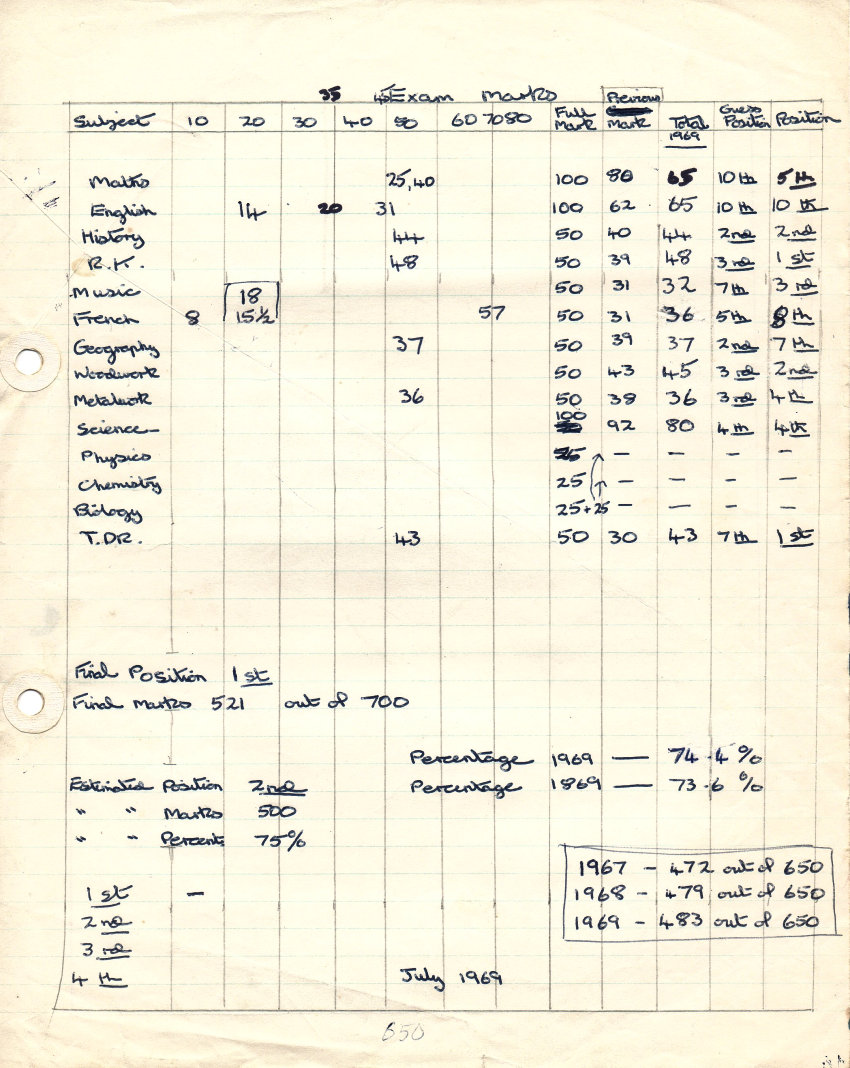 35 45 Exam Marks Previous
Subject 10 20 30 40 50 60 70 80 Full Mark Mark Total 1969 Guess Position Position
Maths 25,40 100 80 65 10th 5th
English 14 20 31 100 62 65 10th 10th
History 44 50 40 44 2nd 2nd
R.K. 48 50 39 48 3rd 1st
Music 18 50 31 32 7th 3rd
French 8 15½ 57 50 31 36 5th 8th
Geography 37 50 39 37 2nd 7th
Woodwork 50 43 45 3rd 2nd
Metalwork 36 50 38 36 3rd 4th
Science 100 92 80 4th 4th
Physics 25 — — — —
Chemistry 25 — — — —
Biology 25+25 — — — —
T.DR. 43 50 30 43 7th 1st
Final Position 1st
Final Marks 521 out of 700
Percentage 1969 — 74.4%
Estimated Position 2nd Percentage 1869 — 73.6%
" " Marks 500
" " Percent 75%
1967 - 472 out of 650
1st — 1968 - 479 out of 650
2nd 1969 - 483 out of 650
3rd
4th July 1969
650